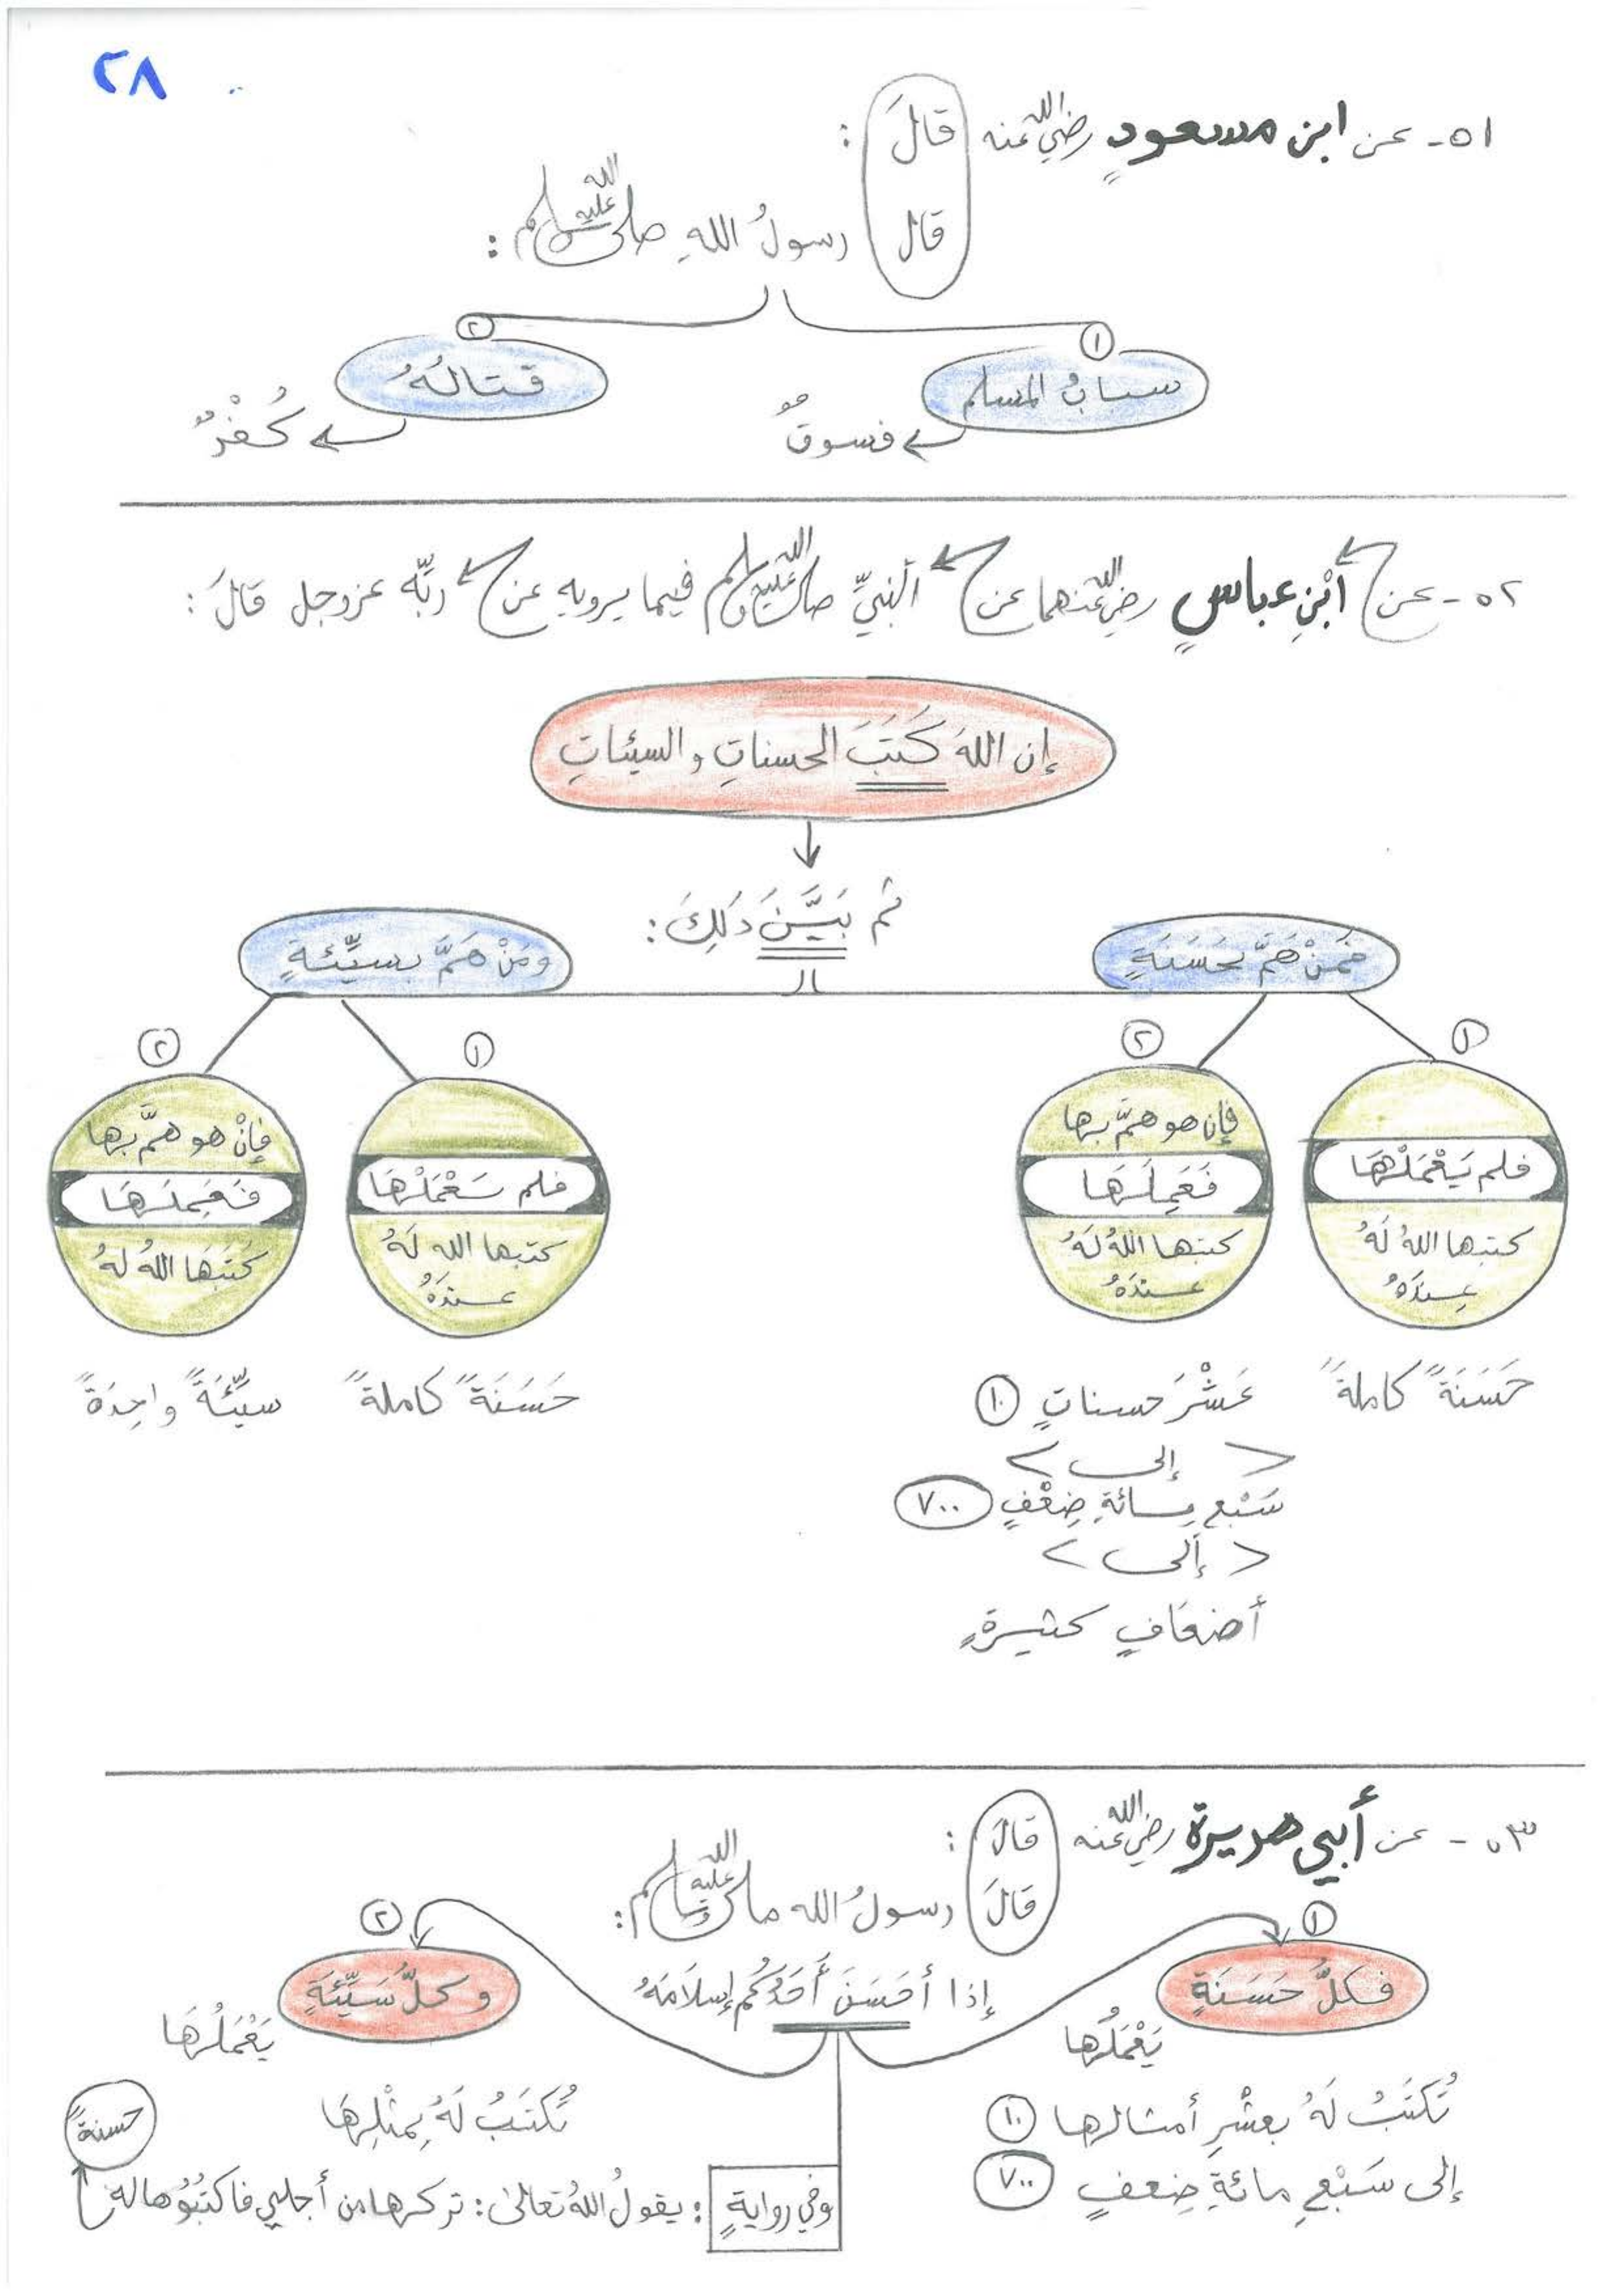 ٢٨
٥١- عن ابن مسعودٍ رضي الله عنه قالَ :
قال رسولُ اللهِ صلى الله عليه وسلم :
١ ٢
سبابُ المسلم قتالُهُ
فسوقٌ كُفْرٌ
٥٢- عن ابْنِ عباسٍ رضي الله عنهما عن النبيِّ صلى الله عليه وسلم فيما يرويه عن ربِّه عز وجل قالَ :
إن اللهَ كَتَبَ الحسناتِ والسيئاتِ
ثم بَيَّنَ ذلِكَ :
فمَنْ هَمَّ بحَسَنَةٍ ومَنْ هَمَّ بسيِّئةٍ
١ ٢ ١ ٢
فلم يَعْمَلْهَا
كتبها اللهُ لَهُ
عِندَهُ
حَسَنَةً كاملةً
فإن هو همَّ بها
فَعَمِلَهَا
كتبها اللهُ لَهُ
عندَهُ
عَشْرَ حسناتٍ ١٠
إلى
سَبْعِ مائةِ ضِعْفٍ ٧٠٠
إلى
أضعَافٍ كثيرةٍ
فلم يَعْمَلْهَا
كتبها الله لَهُ
عندَهُ
حَسَنَةً كاملةً
فإنْ هو همَّ بها
فَعَمِلَهَا
كَتَبَها اللهُ لهُ
سيِّئَةً واحِدَةً
٥٣- عن أبي هريرة رضي الله عنه قالَ :
قالَ رسولُ الله صلى الله عليه وسلم :
إذا أحسَنَ أَحَدُكُم إسلَامَهُ
١ ٢
فكلُّ حَسَنَةٍ وكلُّ سَيِّئَةٍ
يَعْمَلُها يَعْمَلُها
تُكتَبُ لَهُ بعشْرِ أمثالها ١٠
إلى سَبْعِ مائةِ ضِعفٍ ٧٠٠
تُكتَبُ لَهُ بِمثْلِهَا
وفي روايةٍ : يقولُ اللهُ تعالى : تركها من أجلي فاكتُبُوها له
حسنةً